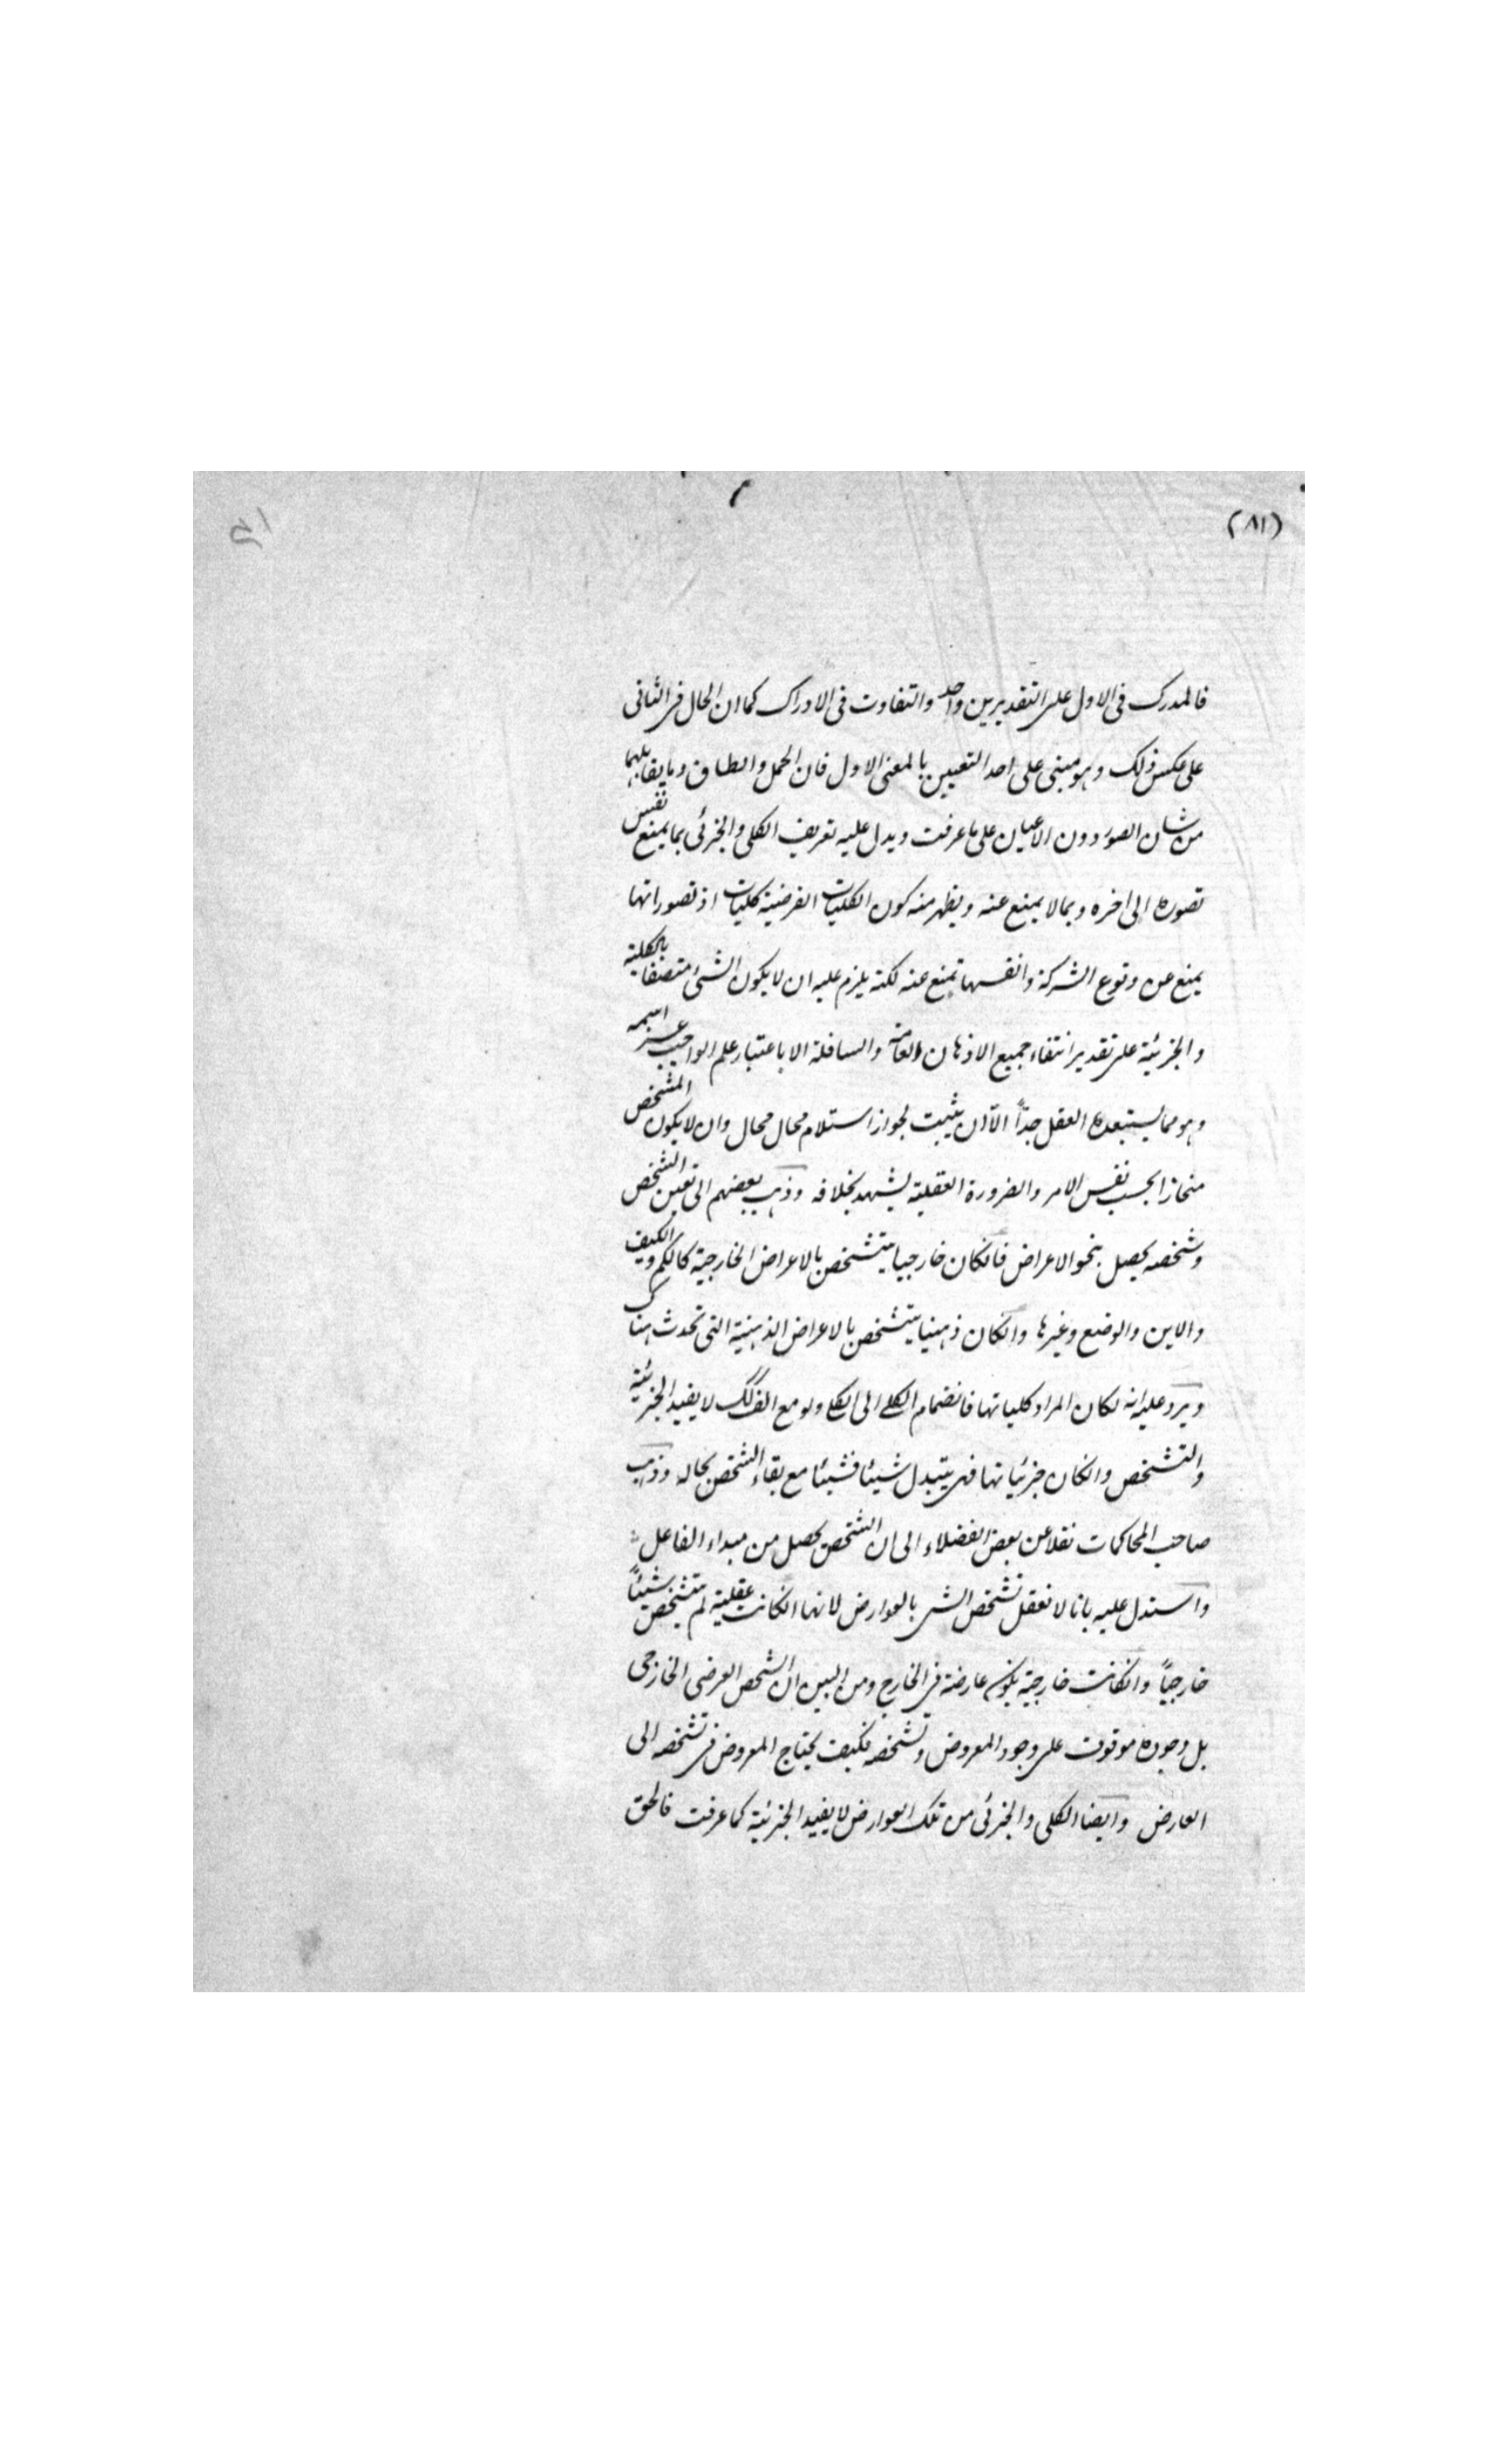 (٨١)
فالمدرك فى الاول على التقديرين واحد والتفاوت فى الادراك كما ان الحال فى الثانى
على عكس ذلك وهو مبنى على احد التعيين بالمعنى الاول فان الحمل وانطباق وما يقابلهما
من شان الصور دون الاعيان على ما عرفت ويدل عليه تعريف الكلى والجزئى بما يمنع نفس
تصوره الى اخره وبما لا يمنع عنه ويظهر منه كون الكليات الفرضية كليات اذ تصوراتها
يمنع عن وقوع الشركة وانفسها تمنع عنه لكنه يلزم عليه ان لا يكون الشئ متصفا بالكلية
والجزئية على تقدير انتفاء جميع الاذهان العالية والسافلة الا باعتبار علم الواجب عز اسمه
وهو مما يستبعده العقل جدّاً الاّ ان يثبت لجواز استلام محال محال وان لا يكون المشخص
منحازا بحسب نفس الامر والضرورة العقلية يشهد بخلافه وذهب بعضهم الى تعين الشخص
وشخصه يحصل بنحو الاعراض فانكان خارجيا يتشخص بالاعراض الخارجية كالكم والكيف
والاين والوضع وغيرها وانكان ذهنيا يتشخص بالاعراض الذهنية التى تحدث هناك
ويرد عليه انه لكان المراد كلياتها فانضمام الكلے الى الكلے ولو مع الف كلے لا يفيد الجزئية
والتشخص وانكان جزئياتها فهى يتبدل شيئا فشيئا مع بقاء الشخص بحاله وذهب
صاحب المحاكمات نقلا عن بعض الفضلاء الى ان الشخص يحصل من مبداء الفاعل
واستدل عليه بانا لا نعقل تشخص الشى بالعوارض لانها انكانت عقلية لم يتشخص شيئاً
خارجياً وانكانت خارجية يكون عارضة فى الخارج ومن البين ان الشخص العرضى الخارجى
بل وجوده موقوف على وجود المعروض وتشخصه فكيف يحتاج المعروض فى تشخصه الى
العارض وايضا الكلى والجزئى من تلك العوارض لا يفيد الجزئية كما عرفت فالحق